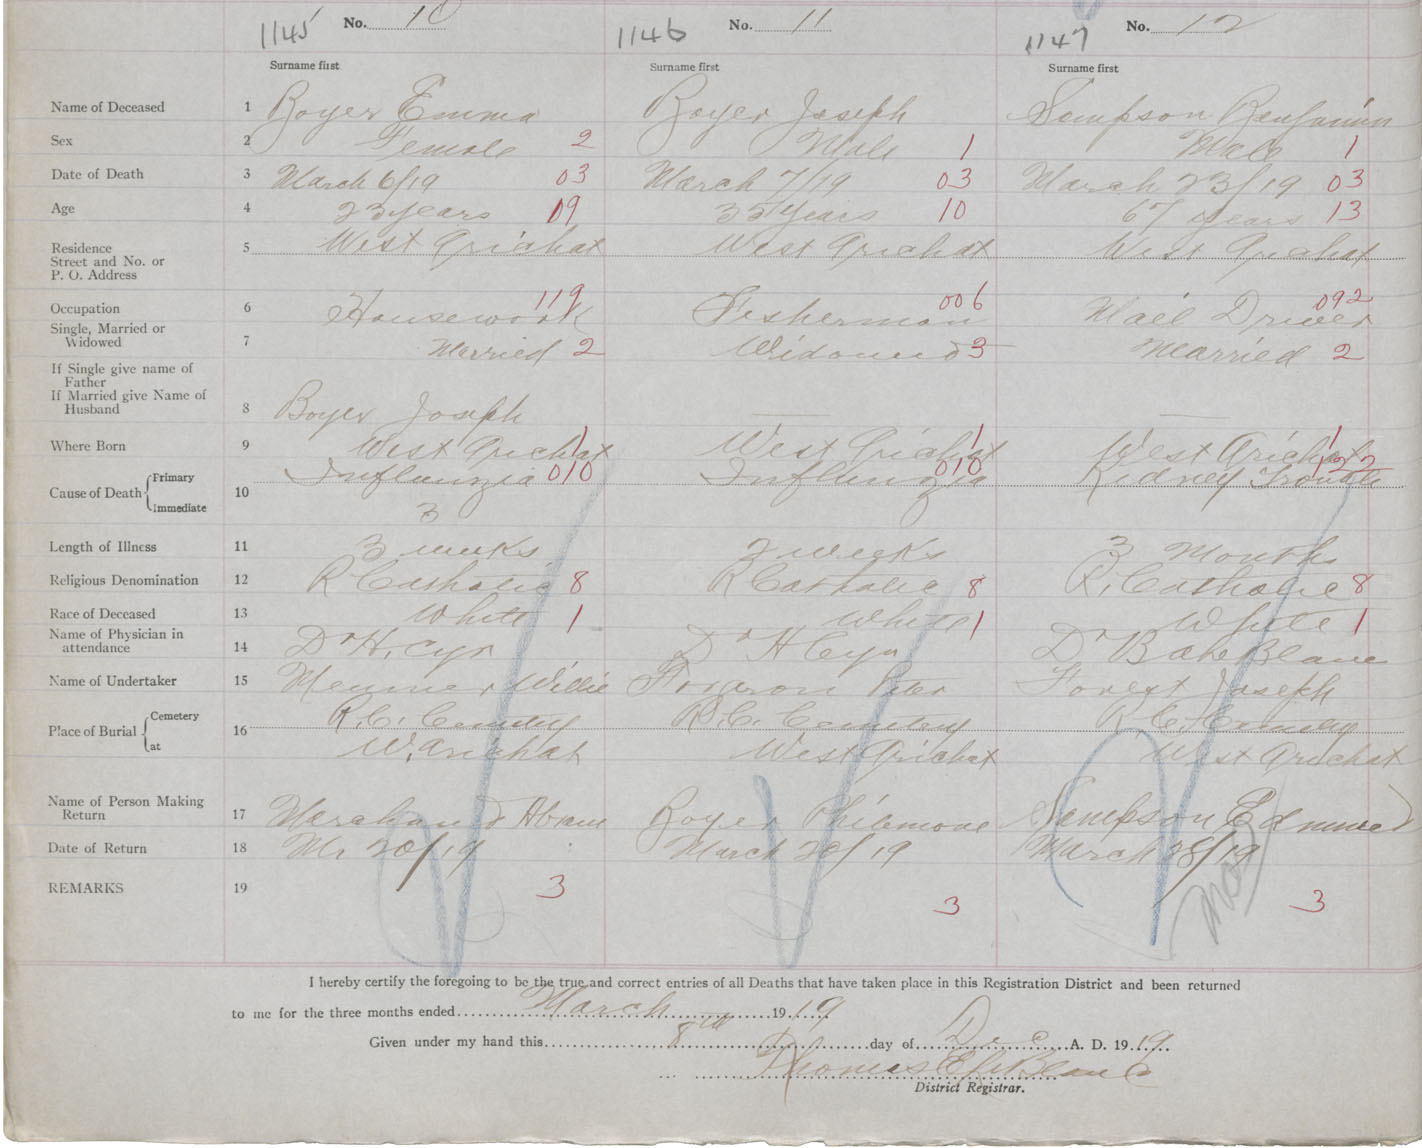 1145 No. 10 1146 No. 11 1147 No. 12
Surname first Surname first Surname first
Name of Deceased 1 Boyer Emma Boyer Joseph Sampson Benjamin
Sex 2 Female 2 Male 1 Male 1
Date of Death 3 March 6/19 03 March 7/19 03 March 23/19 03
Age 4 23 years 09 35 years 10 67 years 13
Residence 5 West Arichat West Arichat West Arichat
Street and No. or
P. O. Address
Occupation 6 Housework 119 Fisherman 006 Mail Driver 092
Single, Married or
Widowed 7 Married 2 Widowed 3 Married 2
If Single give name of
Father
If Married give Name of
Husband 8 Boyer Joseph
Where Born 9 West Arichat 1 West Arichat 1 West Arichat 1
Cause of Death Primary 10 Influenzia 010 Influnzia 010 Kidney Trouble 122
Immediate 3
Length of Illness 11 3 weeks 2 weeks 3 Months
Religious Denomination 12 R Catholic 8 R Catholic 8 R. Catholic 8
Race of Deceased 13 White 1 White 1 White 1
Name of Physician in
attendance 14 Dr H. Cyr Dr H Cyr Dr
Name of Undertaker 15 Willie Peter Forest Joseph
Place of Burial Cemetery 16 R.C. Cemetery R.C. Cemetery R C. Cemetery
at W. Arichat West Arichat West Arichat
Name of Person Making
Return 17 Marchand Abram Boyer Philemone Sampson Edmund
Date of Return 18 Mr 20/19 March 20/19 March 28/19
REMARKS 19 3 3 3
I hereby certify the foregoing to be the true and correct entries of all Deaths that have taken place in this Registration District and been returned
to me for the three months ended March 1919
Given under my hand this 8th day of Dec A. D. 1919
Thomas E LeBlanc
District Registrar.